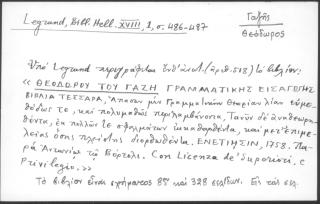 Legrand, Bibl. Hell. XVIII, 1, σ. 486-487
Γαζῆς
Θεόδωρος
Ὑπὸ Legrand περιγράφεται ὑπ' ἀριθ. (ἀριθ. 518) τὸ βιβλίον:
«ΘΕΟΔΩΡΟΥ ΤΟΥ ΓΑΖΗ ΓΡΑΜΜΑΤΙΚΗΣ ΕΙΣΑΓΩΓΗΣ
ΒΙΒΛΙΑ ΤΕΣΣΑΡΑ, Ἅπασαν μὲν Γραμματικὴν Θεωρίαν λίαν εὐμε-
θόδως τε, καὶ πολυμαθῶς περιλαμβάνοντα, Τανῦν δὲ ἀναθεωρη-
θέντα, ἐκ πολλῶν τε σφαλμάτων ἐκκαθαρθέντα, καὶ μετ' ἐπιμε-
λείας ὅσης πλείστης διορθωθέντα. ΕΝΕΤΙΗΣΙΝ, 1758. Πα-
ρὰ Ἀντωνίῳ τῷ Βόρτολι. Con Licenza de' Superiori, e
Privilegio.»
Τὸ βιβλίον εἶναι σχήματος 8ον καὶ 328 σελίδων. Εἰς τὰς σελ.